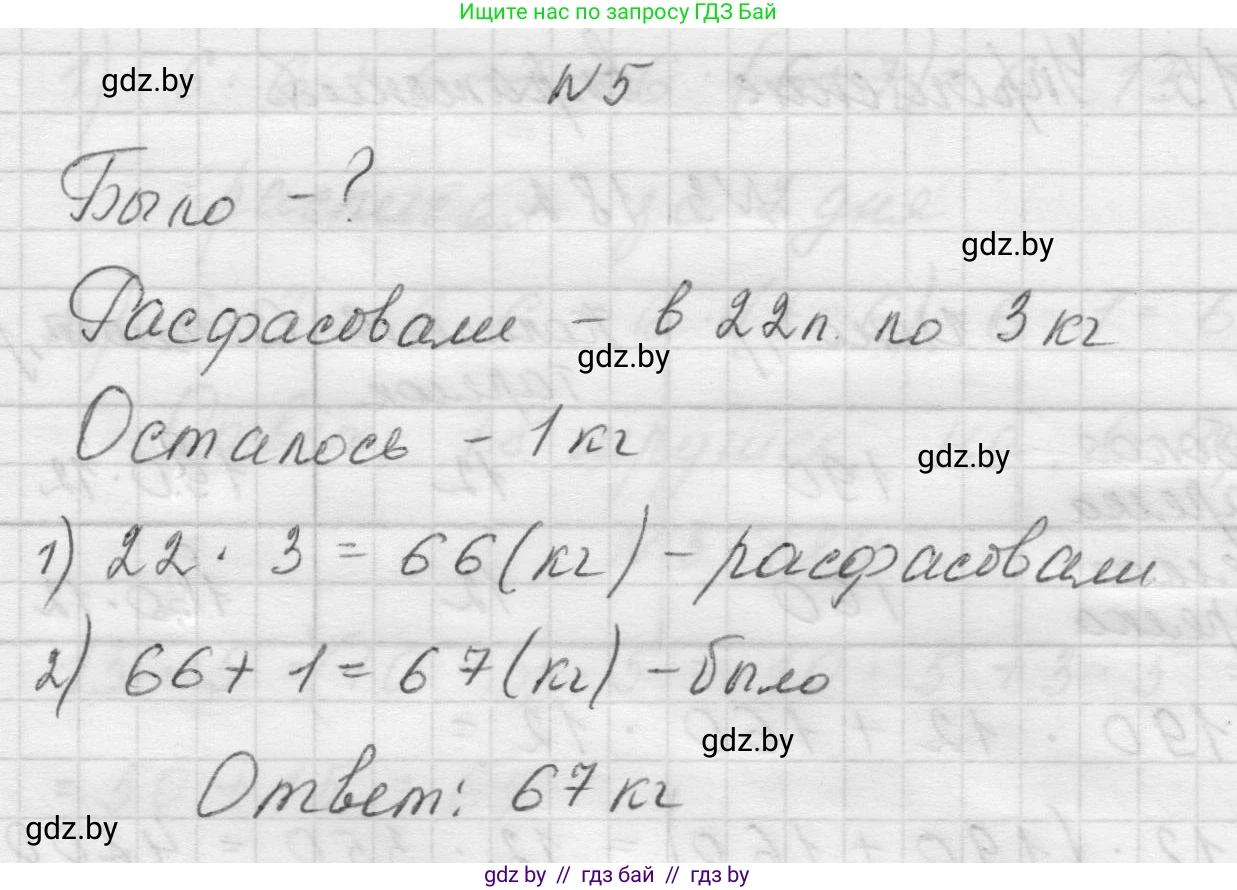 Ищите нас по запросу ГДЗ Бай
gdz.by
N 5
Было - ?
gdz.by
Расфасовали - в 22 п. по 3 кг
gdz.by
Осталось - 1 кг
gdz.by
1) 22 · 3 = 66 (кг) - расфасовали
2) 66 + 1 = 67 (кг) - было
gdz.by
Ответ: 67 кг
gdz.by
gdz by // гдз бай // гдз by